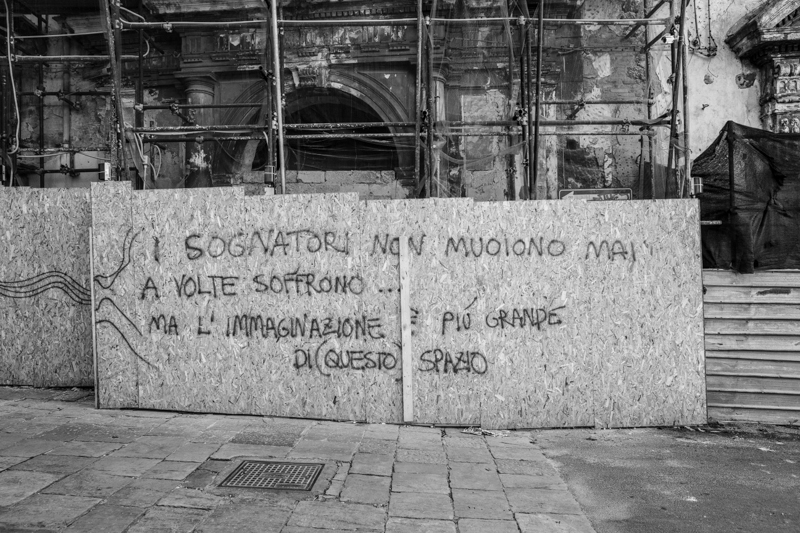 I SOGNATORI NON MUOIONO MAI
A VOLTE SOFFRONO ...
MA L'IMMAGINAZIONE È PIÚ GRANDE
DI (QUESTO) SPAZIO